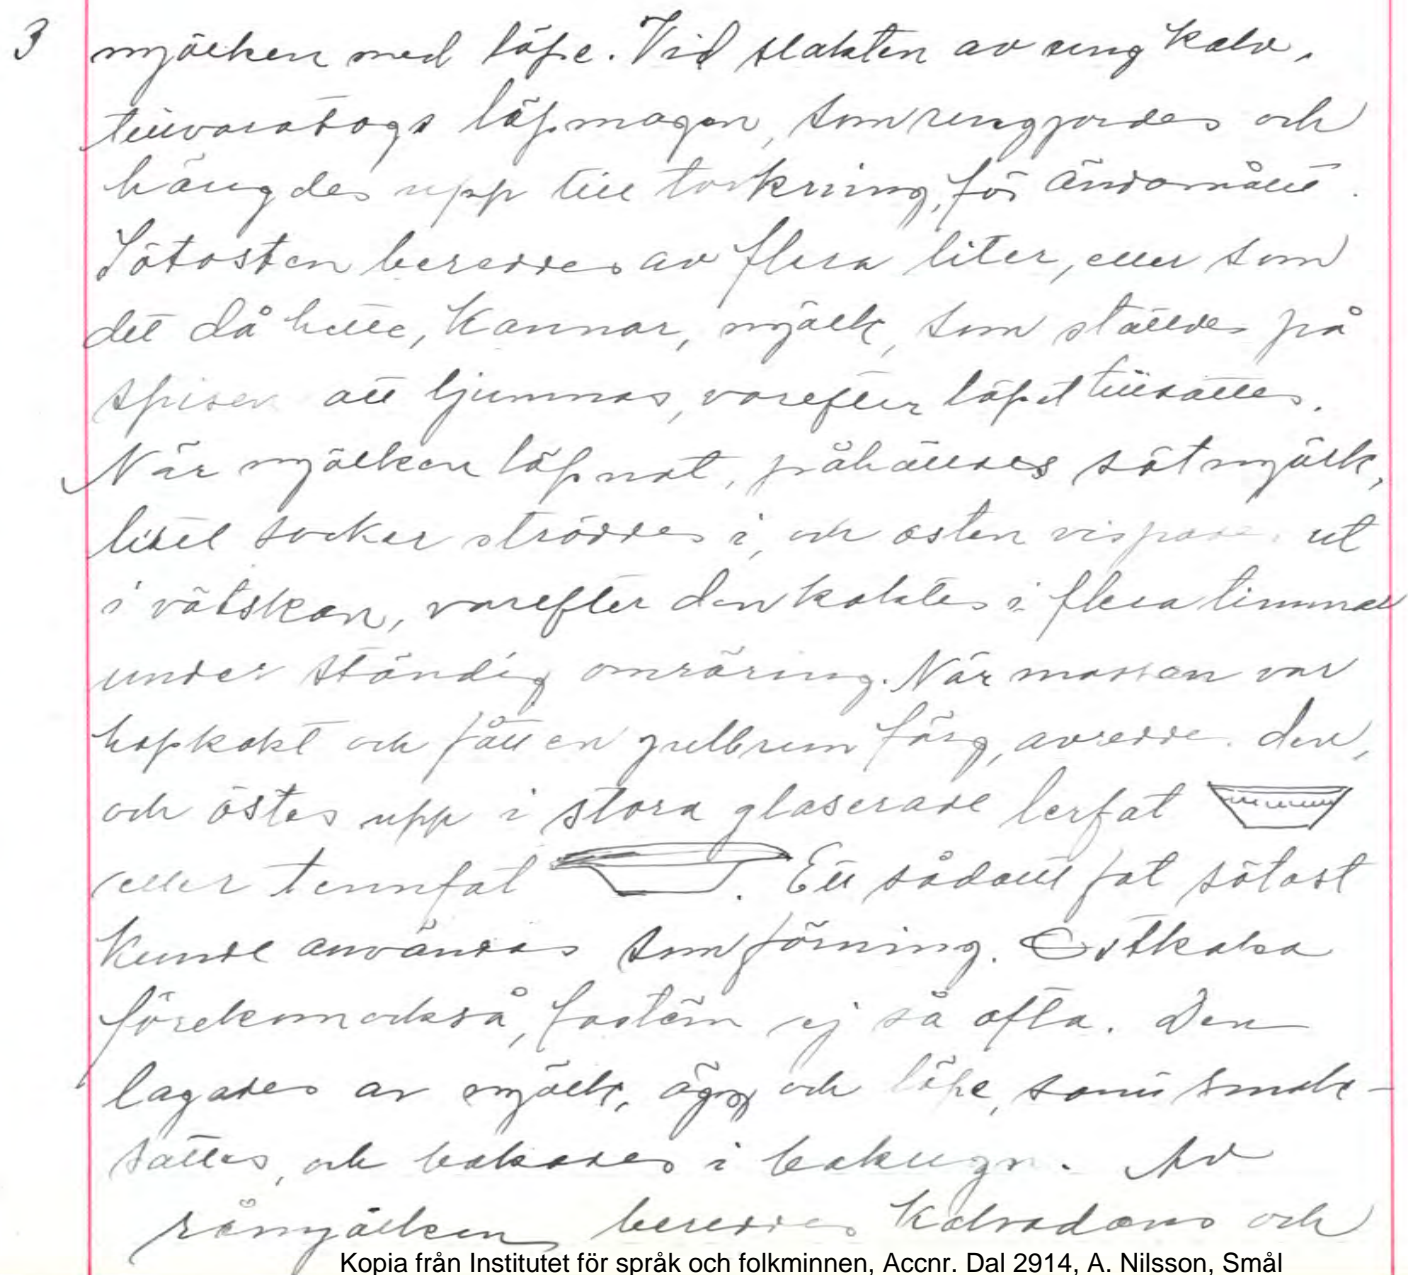 3 mjölken med löpe. Vid slakten av ung kalv,
tillvaratogs löpmagen, som rengjordes och
hängdes upp till torkning, för ändamålet.
Sötosten bereddes av flera liter, eller som
det då hette, Kannor, mjölk, som ställdes på
spisen att ljummas, varefter löpet tillsattes.
När mjölken löpnat, påhälldes sötmjölk,
litet socker ströddes i, och osten vispades ut
i vätskan, varefter den koktes i flera timmar
under ständig omröring. När massan var
hopkokt och fått en gulbrun färg, avreddes den,
och östes upp i stora glaserade lerfat
eller tennfat . Ett sådant fat sötost
Kunde användas som förning. Ostkaka
förekom också, fastän ej så ofta. Den
lagades av mjölk, ägg och löpe, samt smak-
sattes, och bakades i bakugn. Av
råmjölken bereddes Kalvdans och
Kopia från Institutet för språk och folkminnen, Accnr. Dal 2914, A. Nilsson, Smål